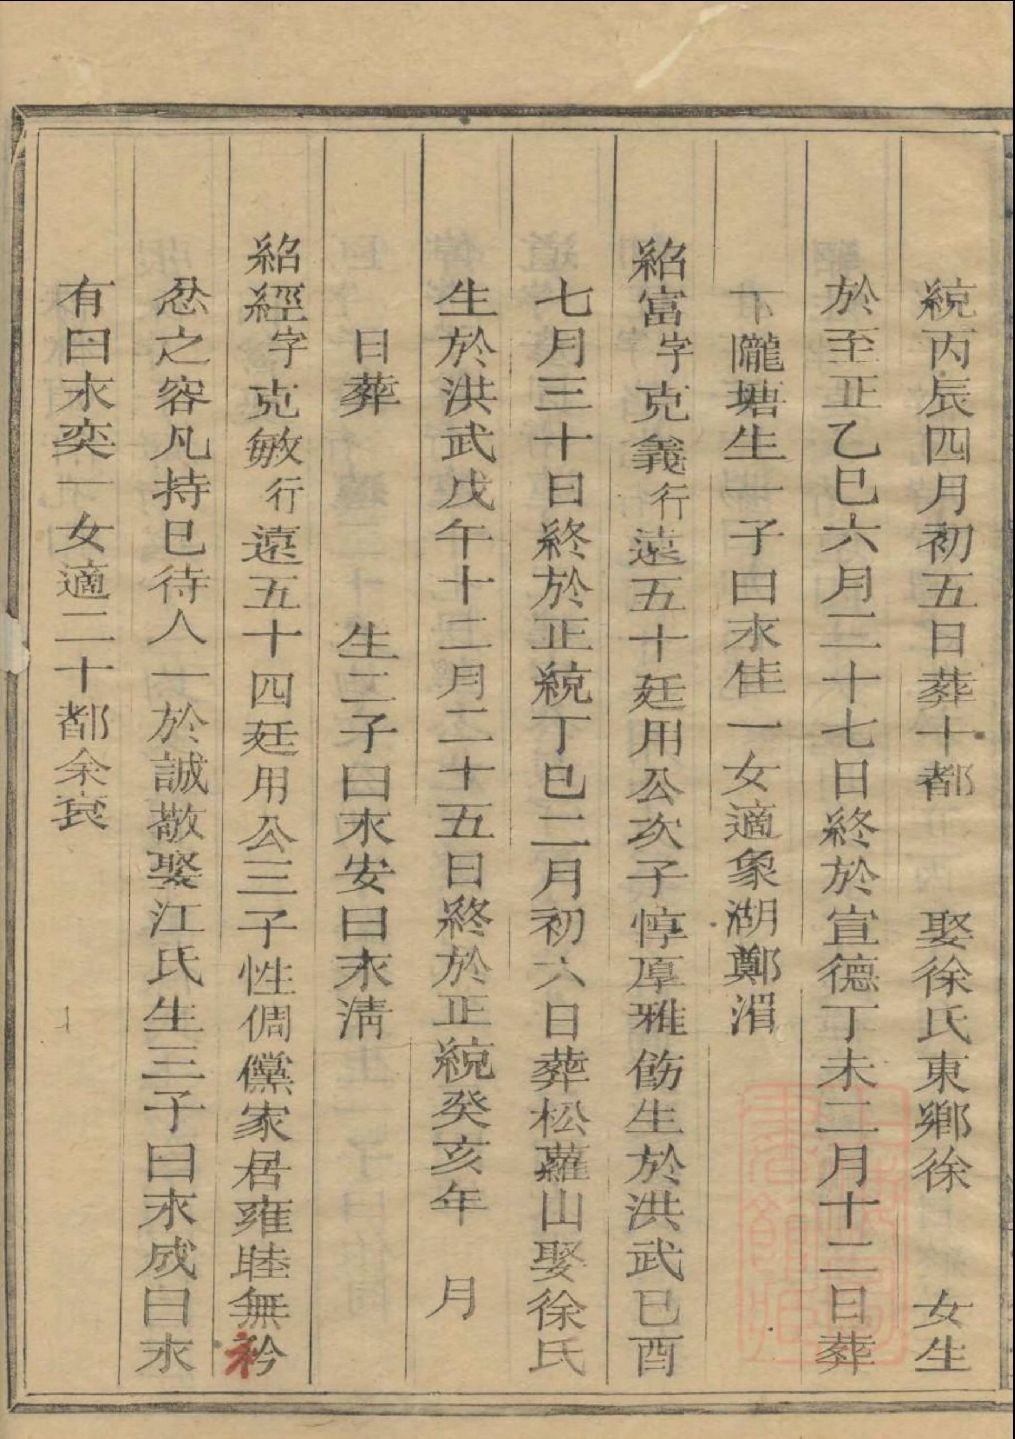 統丙辰四月初五日葬十都　娶徐氏東鄉徐　女生
於至正乙巳六月二十七日終於宣德丁未二月十二日葬
下隴塘生一子曰永佳一女適象湖鄭湄
紹富字克義行遠五十廷用公次子惇厚雅飭生於洪武己酉
七月三十日終於正統丁巳二月初六日葬松蘿山娶徐氏
生於洪武戊午十二月二十五日終於正統癸亥年　月
日葬　生二子曰永安曰永清
紹經字克敏行遠五十四廷用公三子性倜儻家居雍睦無矜
忿之容凡持已待人一於誠敬娶江氏生三子曰永成曰永
有曰永奕一女適二十都余袞